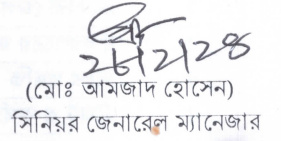 (মোঃ আমজাদ হোসেন)
সিনিয়র জেনারেল ম্যানেজার